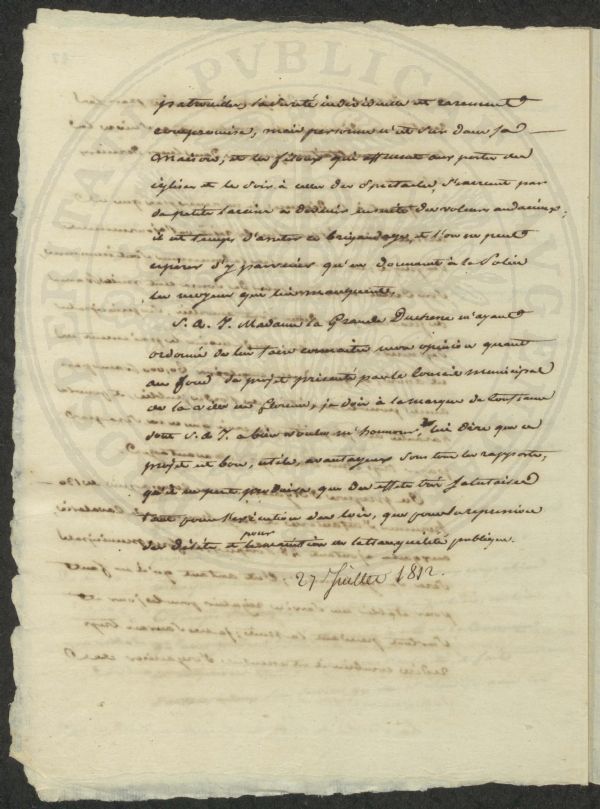 patrouilles, la sureté individuelle est rarement
compromise, mais personne n'est sûr dans sa
maison; et les filoux qui affluent aux portes des
églises et le soir à celles des Spectacles, S'exercent par
de petits larcins à devenir ensuite des voleurs audacieux;
il est temps d'arreter ce brigandage, et l'on ne peut
espérer d'y parvenir qu'en donnant à la Police
les moyens qui lui manquent.
S. A. I. Madame la Grande Duchesse m'ayant
ordonné de lui faire connaitre mon opinion quant
au fond du projet présenté par le Conseil municipal
de la ville de florence, je dois à la marque de confiance
dont S. A. I. a bien voulu m'honorer, lui dire que ce
projet est bon, utile, avantageux sous tous les rapports,
qu'il ne peut produire que des effets très salutaires
tant pour l'exécution des loix, que pour la repression
des délits et pour le maintien de la tranquillité publique.
27 Juillet 1812.
PVBLIC